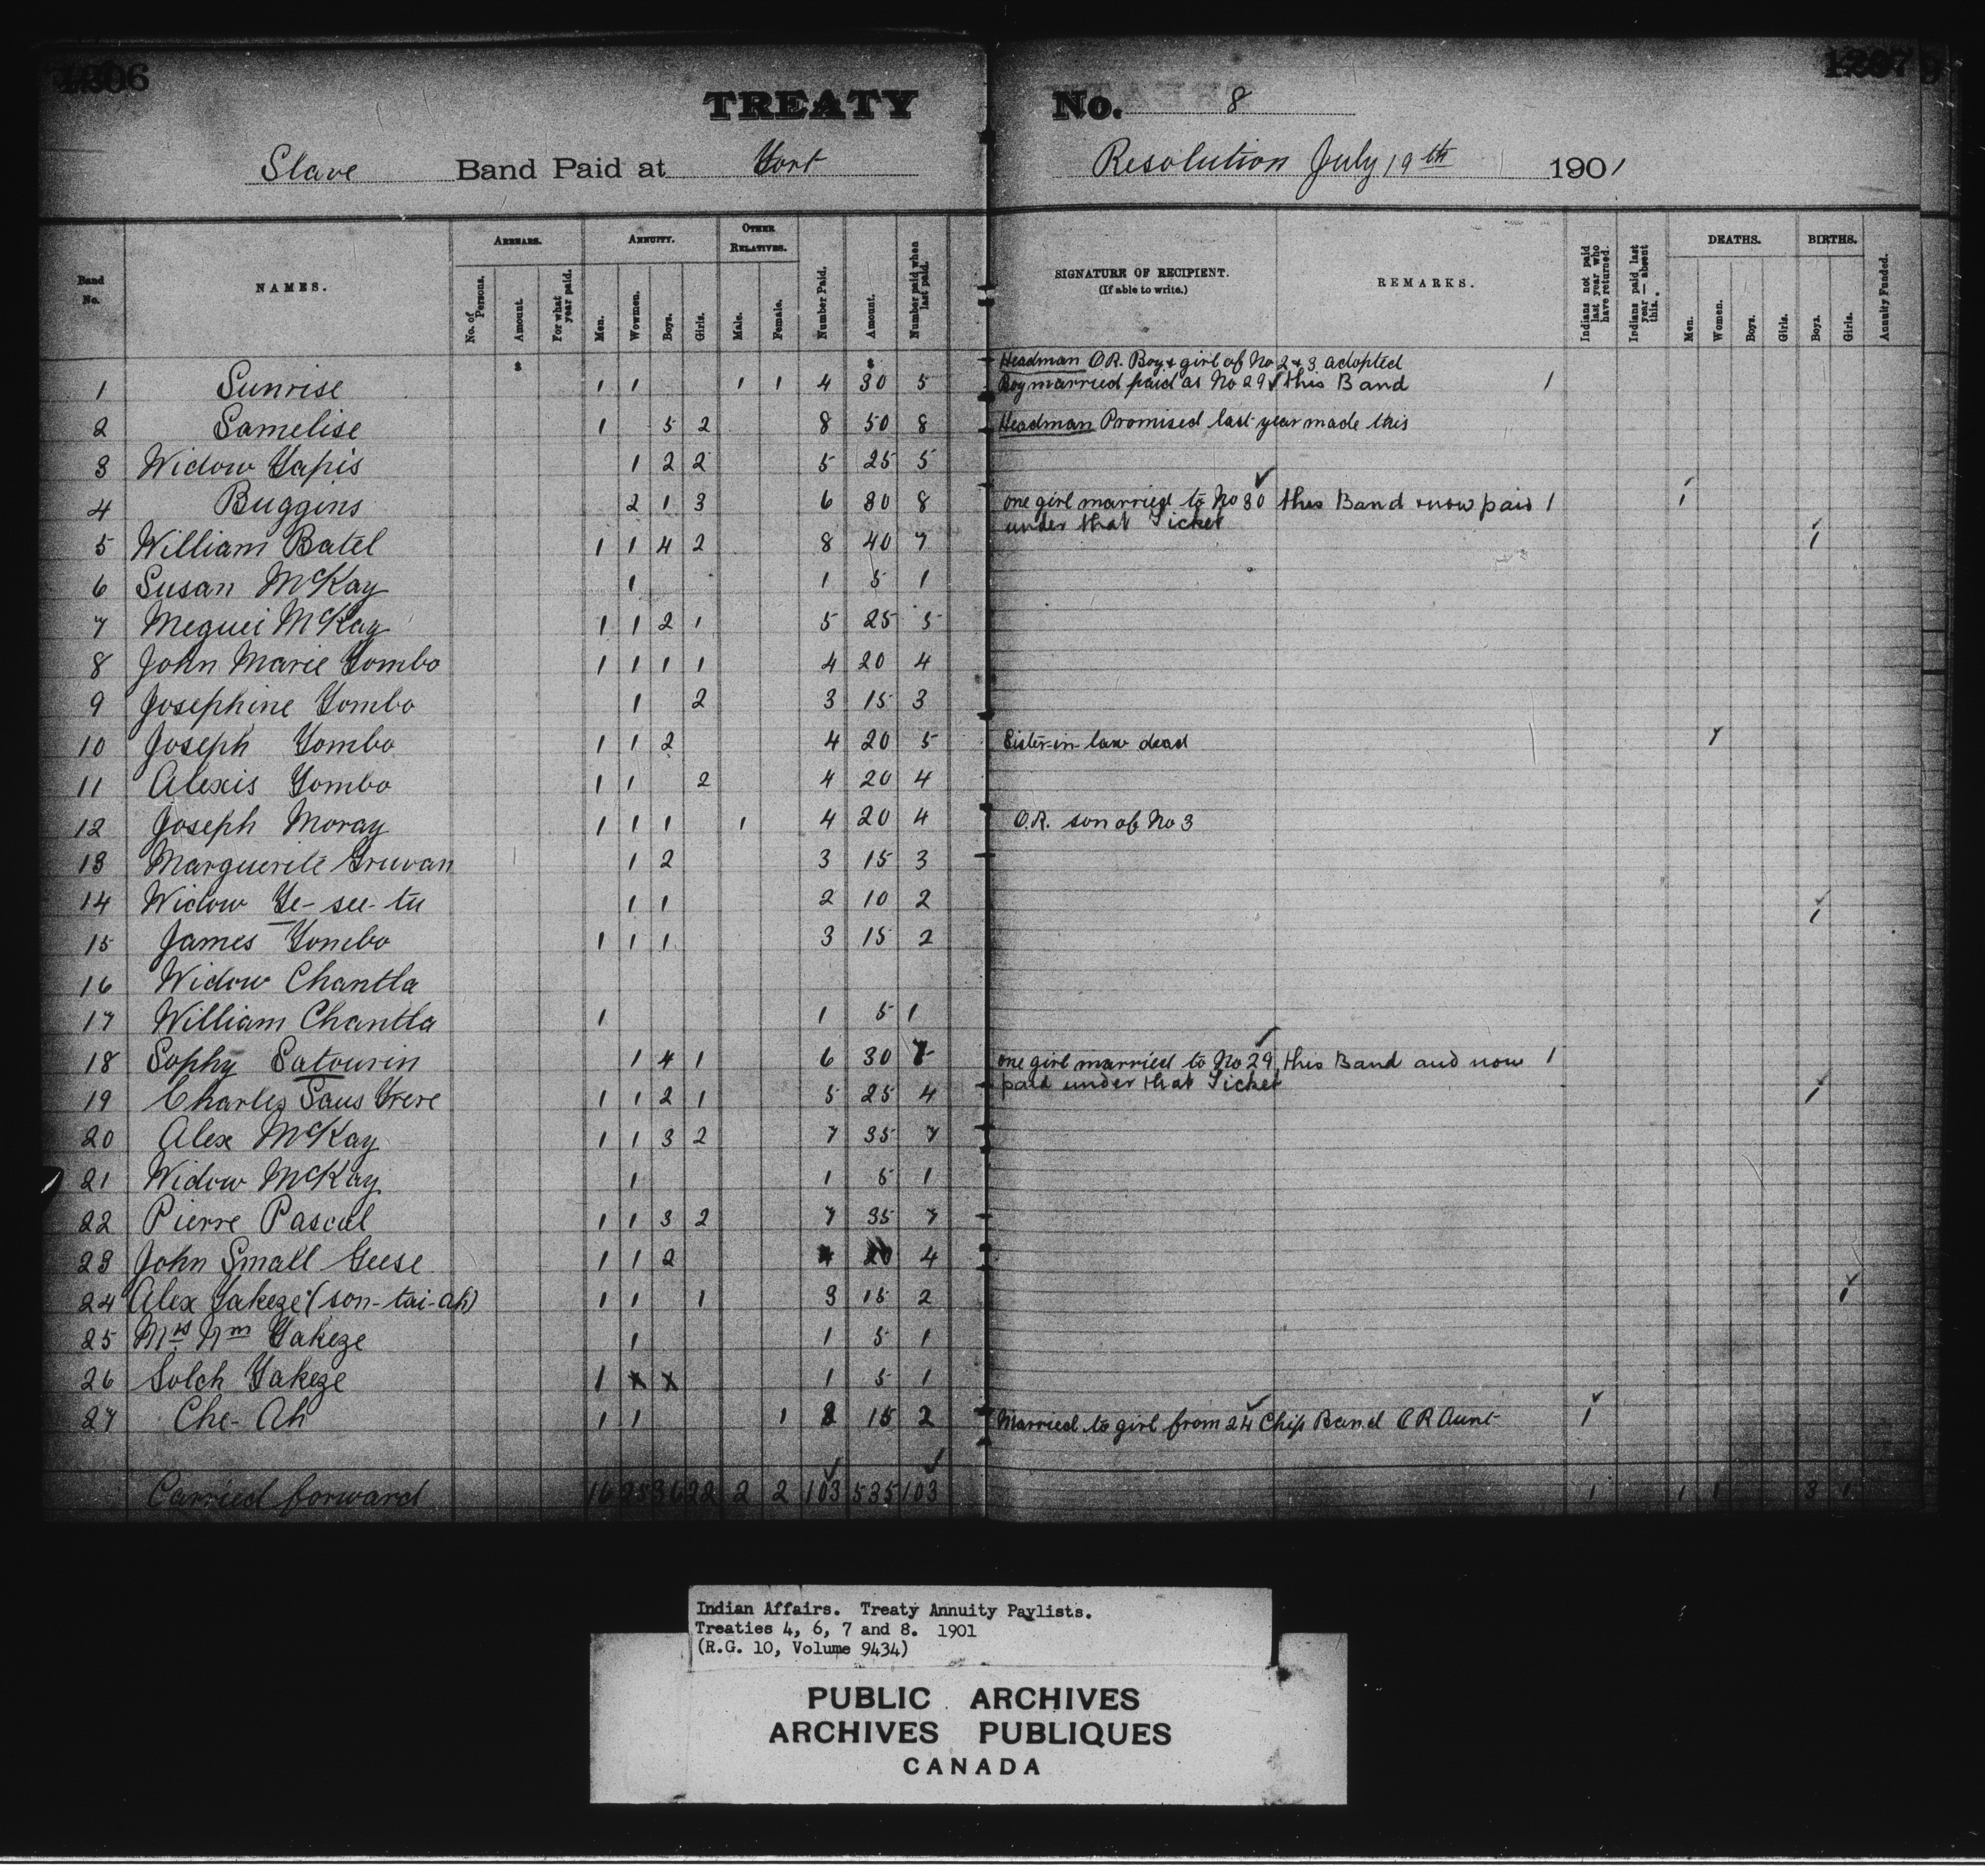 1206
1207
TREATY No. 8
Slave Band Paid at Fort Resolution July 19th 1901
Band No.
NAMES.
ARREARS.
No. of Persons.
Amount.
For what year paid.
ANNUITY.
Men.
Wowmen.
Boys.
Girls.
OTHER RELATIVES.
Male.
Female.
Number Paid.
Amount.
Number paid when last paid.
SIGNATURE OF RECIPIENT.
(If able to write.)
REMARKS.
Indians not paid last year who have returned.
Indians paid last year — absent this.
DEATHS.
Men.
Women.
Boys.
Girls.
BIRTHS.
Boys.
Girls.
Annuity Funded.
$ $
Headman O.R. Boy & girl of No 2 & 3 adopted
1 Sunrise 1 1 1 1 4 30 5 Boy married paid as No 29 this Band 1
2 Samelise 1 5 2 8 50 8 Headman Promised last year made this
3 Widow Yapis 1 2 2 5 25 5
4 Buggins 2 1 3 6 30 8 one girl married to No 30 this Band & now paid 1 1
under that Ticket
5 William Batel 1 1 4 2 8 40 7 1
6 Susan McKay 1 1 5 1
7 Meguei McKay 1 1 2 1 5 25 5
8 John Marie Yombo 1 1 1 1 4 20 4
9 Josephine Yombo 1 2 3 15 3
10 Joseph Yombo 1 1 2 4 20 5 Sister-in-law dead 1
11 Alexis Yombo 1 1 2 4 20 4
12 Joseph Moray 1 1 1 1 4 20 4 O.R. son of No 3
13 Marguerite Gruvan 1 2 3 15 3
14 Widow Ye-see-tu 1 1 2 10 2
15 James Yombo 1 1 1 3 15 2 1
16 Widow Chantla
17 William Chantla 1 1 5 1
18 Sophy Satourin 1 4 1 6 30 7 one girl married to No 29 this Band and now 1
paid under that Ticket
19 Charles Saus Frere 1 1 2 1 5 25 4 1
20 Alex McKay 1 1 3 2 7 35 7
21 Widow McKay 1 1 5 1
22 Pierre Pascal 1 1 3 2 7 35 7
23 John Small Geese 1 1 2 4 20 4
24 Alex Yakeze (son-tai-ah) 1 1 1 3 15 2 1
25 Yakeze 1 1 5 1
26 Solch Yakeze 1 x x 1 5 1
27 Che-Ah 1 1 1 3 15 2 Married to girl from 24 Chip Band O R Aunt 1
Carried forward 16 25 36 22 2 2 103 535 103 1 1 1 3 1
Indian Affairs. Treaty Annuity Paylists.
Treaties 4, 6, 7 and 8. 1901
(R.G. 10, Volume 9434)
PUBLIC ARCHIVES
ARCHIVES PUBLIQUES
CANADA